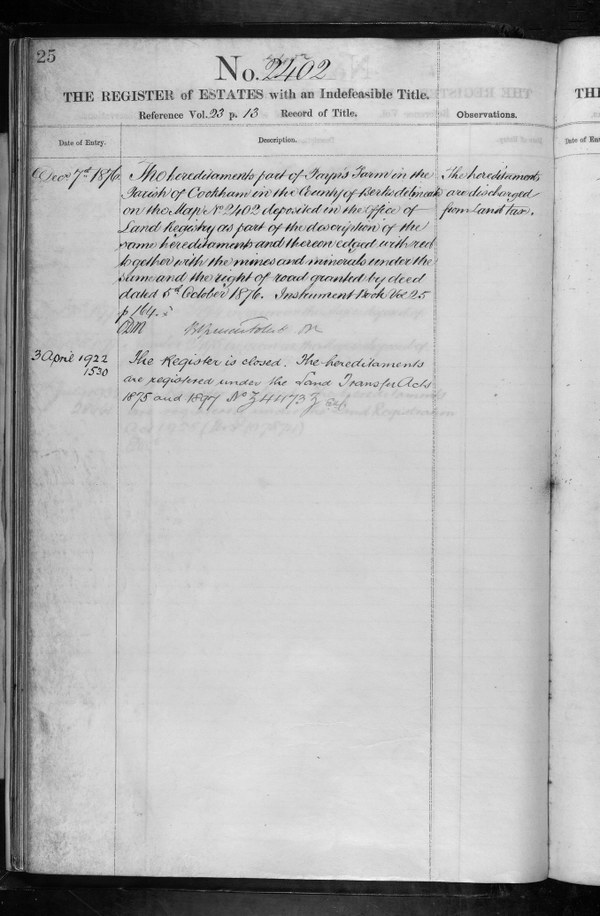 25
No. 2402
THE REGISTER of ESTATES with an Indefeasible Title.
Reference Vol. 23 p. 13 Record of Title.
Observations.
Date of Entry.
Description.
Decr 7th 1876.
The hereditaments part of Farm in the
Parish of Cookham in the County of Berks delineated
on the Map No 2402 deposited in the Office of
Land Registry as part of the description of the
same hereditaments and thereon edged with red
together with the mines and minerals under the
same and the right of road granted by deed
dated 5th October 1876. Instrument Book Vol 25
p 164.
The hereditaments
are discharged
from Land tax.
3 April 1922
1530
The Register is closed. The hereditaments
are registered under the Land Transfer Acts
1875 and 1897 No
TH
Date of En